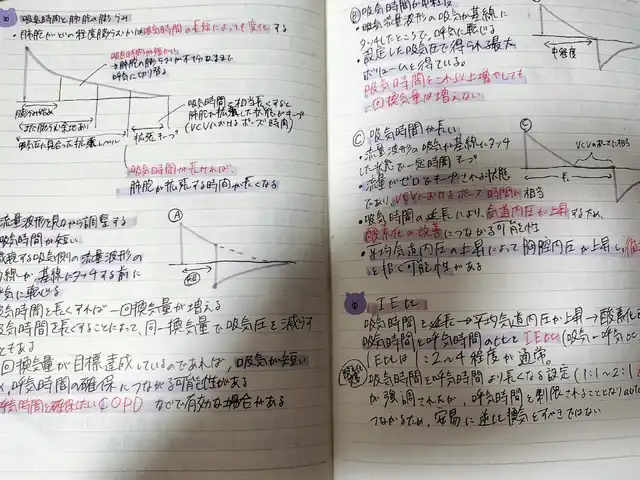 吸気時間と肺胞の膨らみ
・肺胞がどの程度膨らうかは吸気時間の長短によっても変化する
吸気時間が短い
→肺胞の膨らみが不十分なままで
呼気に切り替る
膨らみ始め
まだ膨らむ余地あり
吸気圧に見合った拡張レベル
拡張キープ
吸気時間を相当長くすると
肺胞が拡張した状態がキープ
(VCVにおけるポーズ時間)
吸気時間が長ければ、
肺胞が拡張する時間が長くなる
流量波形を見ながら調整する
吸気時間が短い
A
短い
減衰する吸気側の流量波形の
曲線が基線にタッチする前に
呼気に転じる
吸気時間を長くすれば一回換気量が増える
吸気時間を長くすることによって、同一換気量で吸気圧を減らす
こともある
一回換気量が目標達成しているのであれば、吸気が短い
呼気時間の確保につながる可能性がある
呼気時間を確保したいCOPDなどで有効な場合がある
B 吸気時間が中程度
・吸気流量波形の吸気が基線に
タッチしたところで、呼気に転じる
・設定した吸気圧で得られる最大
ボリュームを得ている。
吸気時間をこれ以上増やしても
一回換気量は増えない
中程度
C 吸気時間が長い
・流量波形の吸気が基線にタッチ
した状態で一定時間キープ
・流量がゼロでキープされる状態
であり、VCVにおけるポーズ時間に相当
・吸気時間の延長により、気道内圧が上昇するため、
酸素化の改善につながる可能性
・平均気道内圧の上昇によって胸腔内圧が上昇し、循
を招く可能性がある
C
VCVのポーズに相当
長
IE比
吸気時間を延長→平均気道内圧が上昇→酸素化
吸気時間と呼気時間の比としてIE比(吸気-呼気比
IE比は1:2~4程度が通常。
吸気時間を呼気時間より長くなる設定(1:1~2:1
が強調されたが、呼気時間を制限されることとなりauto
つながるため、安易に逆比換気をすべきではない